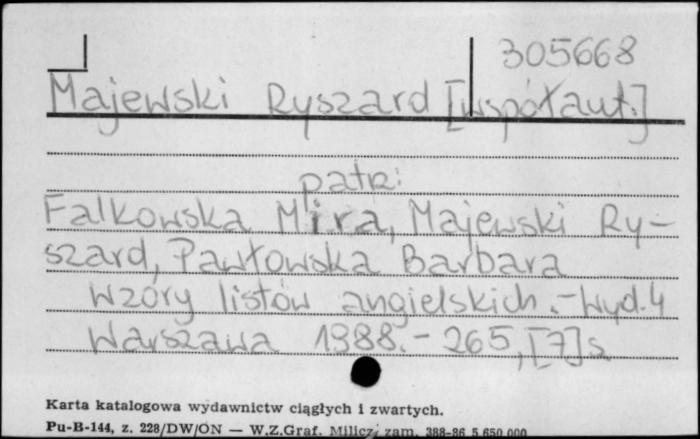 305668
Majewski Ryszard [współaut.]
patrz:
Falkowska Mira, Majewski Ry-
szard, Pawłowska Barbara
Wzory listów angielskich.-Wyd.4
Warszawa 1988.- 265, [7] s.
Karta katalogowa wydawnictw ciągłych i zwartych.
Pu-B-144, z. 228/DW/ON — W.Z.Graf. Milicz, zam. 388-86 5 650 000